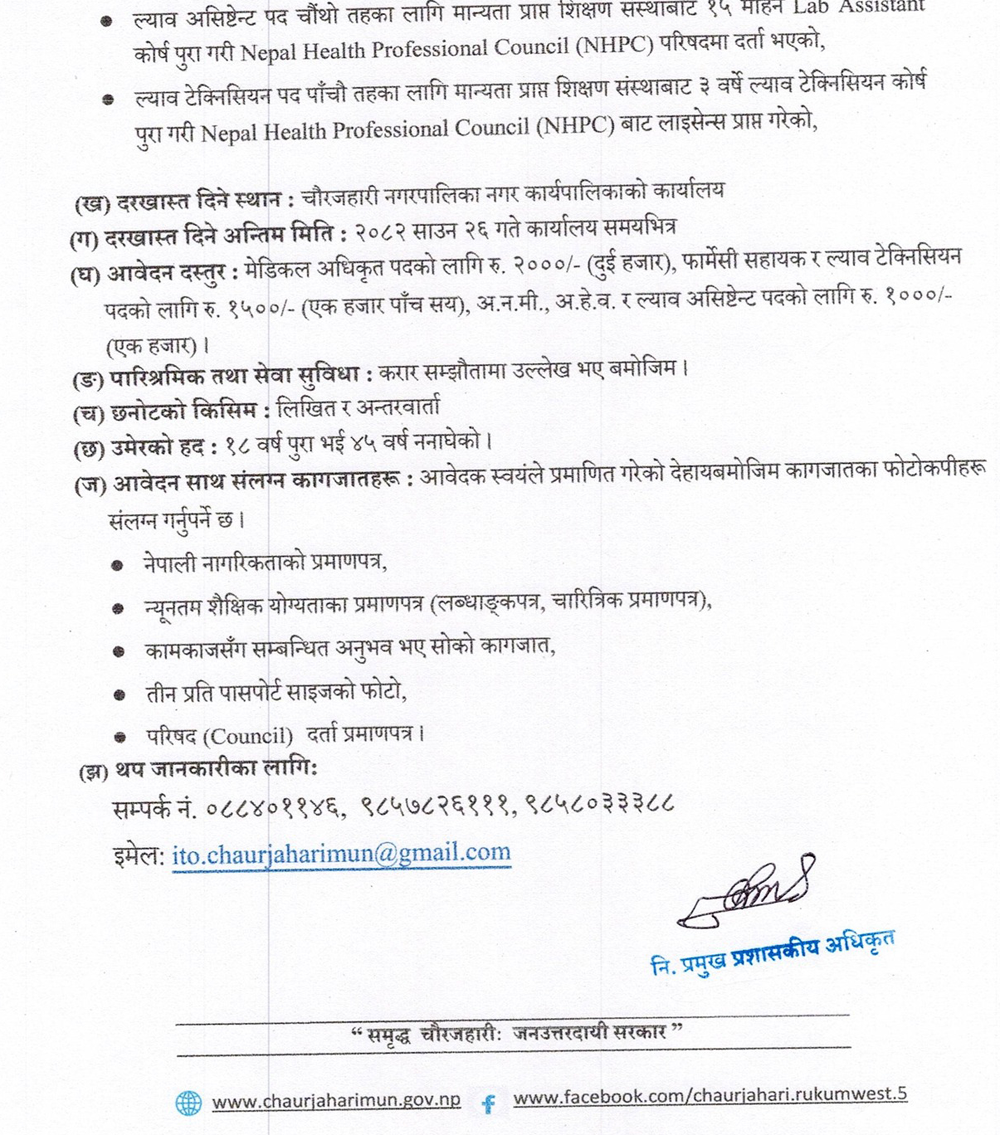 ल्याव असिष्टेन्ट पद चौंथो तहका लागि मान्यता प्राप्त शिक्षण संस्थाबाट १५ महिने Lab Assistant
कोर्ष पुरा गरी Nepal Health Professional Council (NHPC) परिषदमा दर्ता भएको,
ल्याव टेक्निसियन पद पाँचौ तहका लागि मान्यता प्राप्त शिक्षण संस्थाबाट ३ वर्षे ल्याव टेक्निसियन कोर्ष
पुरा गरी Nepal Health Professional Council (NHPC) बाट लाइसेन्स प्राप्त गरेको,
(ख) दरखास्त दिने स्थान : चौरजहारी नगरपालिका नगर कार्यपालिकाको कार्यालय
(ग) दरखास्त दिने अन्तिम मिति : २०८२ साउन २६ गते कार्यालय समयभित्र
(घ) आवेदन दस्तुर : मेडिकल अधिकृत पदको लागि रु. २०००/- (दुई हजार), फार्मेसी सहायक र ल्याव टेक्निसियन
पदको लागि रु. १५००/- (एक हजार पाँच सय), अ.न.मी., अ.हे.व. र ल्याव असिष्टेन्ट पदको लागि रु. १०००/-
(एक हजार) ।
(ङ) पारिश्रमिक तथा सेवा सुविधा : करार सम्झौतामा उल्लेख भए बमोजिम ।
(च) छनोटको किसिम : लिखित र अन्तरवार्ता
(छ) उमेरको हद : १८ वर्ष पुरा भई ४५ वर्ष ननाघेको ।
(ज) आवेदन साथ संलग्न कागजातहरू : आवेदक स्वयंले प्रमाणित गरेको देहायबमोजिम कागजातका फोटोकपीहरू
संलग्न गर्नुपर्ने छ ।
नेपाली नागरिकताको प्रमाणपत्र,
न्यूनतम शैक्षिक योग्यताका प्रमाणपत्र (लब्धाङ्कपत्र, चारित्रिक प्रमाणपत्र),
कामकाजसँग सम्बन्धित अनुभव भए सोको कागजात,
तीन प्रति पासपोर्ट साइजको फोटो,
परिषद (Council) दर्ता प्रमाणपत्र ।
(झ) थप जानकारीका लागि:
सम्पर्क नं. ०८८४०११४६, ९८५७८२६१११, ९८५८०३३३८८
इमेल: ito.chaurjaharimun@gmail.com
नि. प्रमुख प्रशासकीय अधिकृत
“ समृद्ध चौरजहारी: जनउत्तरदायी सरकार ”
www.chaurjaharimun.gov.np www.facebook.com/chaurjahari.rukumwest.5